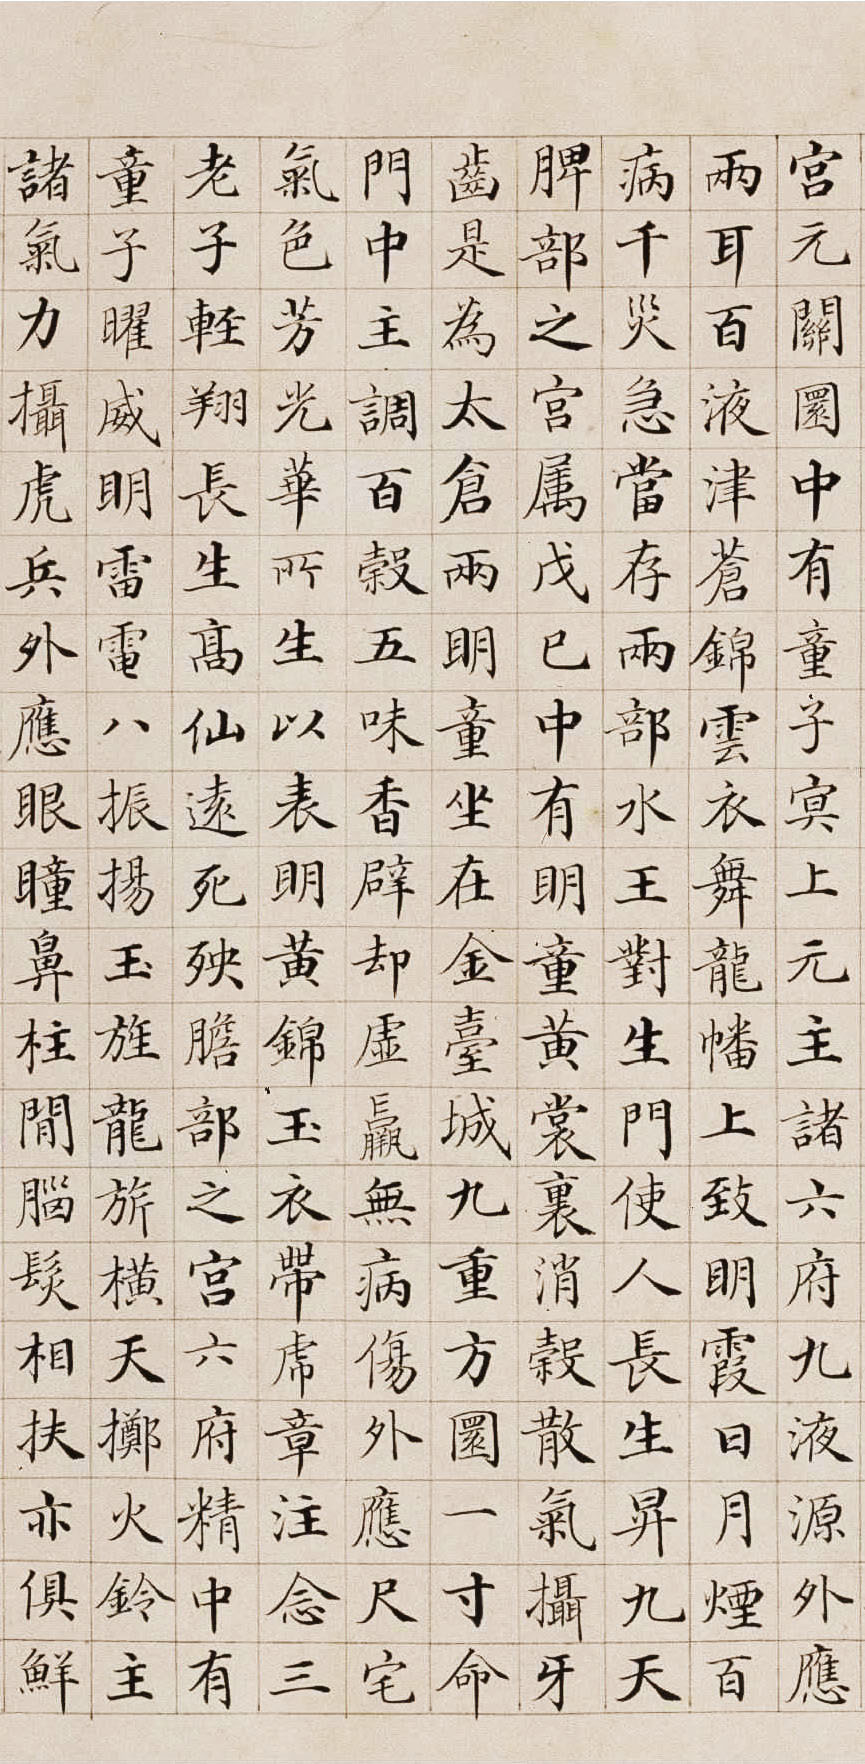 宮元關圜中有童子㝠上元主諸六府九液源外應
兩耳百液津蒼錦雲衣舞龍幡上致明霞日月煙百
病千災急當存兩部水王對生門使人長生昇九天
脾部之宮属戊己中有明童黃裳裏消榖散氣攝牙
齒是為太倉兩明童坐在金臺城九重方圜一寸命
門中主調百榖五味香辟却虛羸無病傷外應尺宅
氣色芳光華所生以表明黃錦玉衣帶虎章注念三
老子軽翔長生高仙遠死殃膽部之宮六府精中有
童子曜威明雷電八振揚玉旌龍旂橫天擲火鈴主
諸氣力攝虎兵外應眼瞳鼻柱間腦髮相扶亦俱鮮